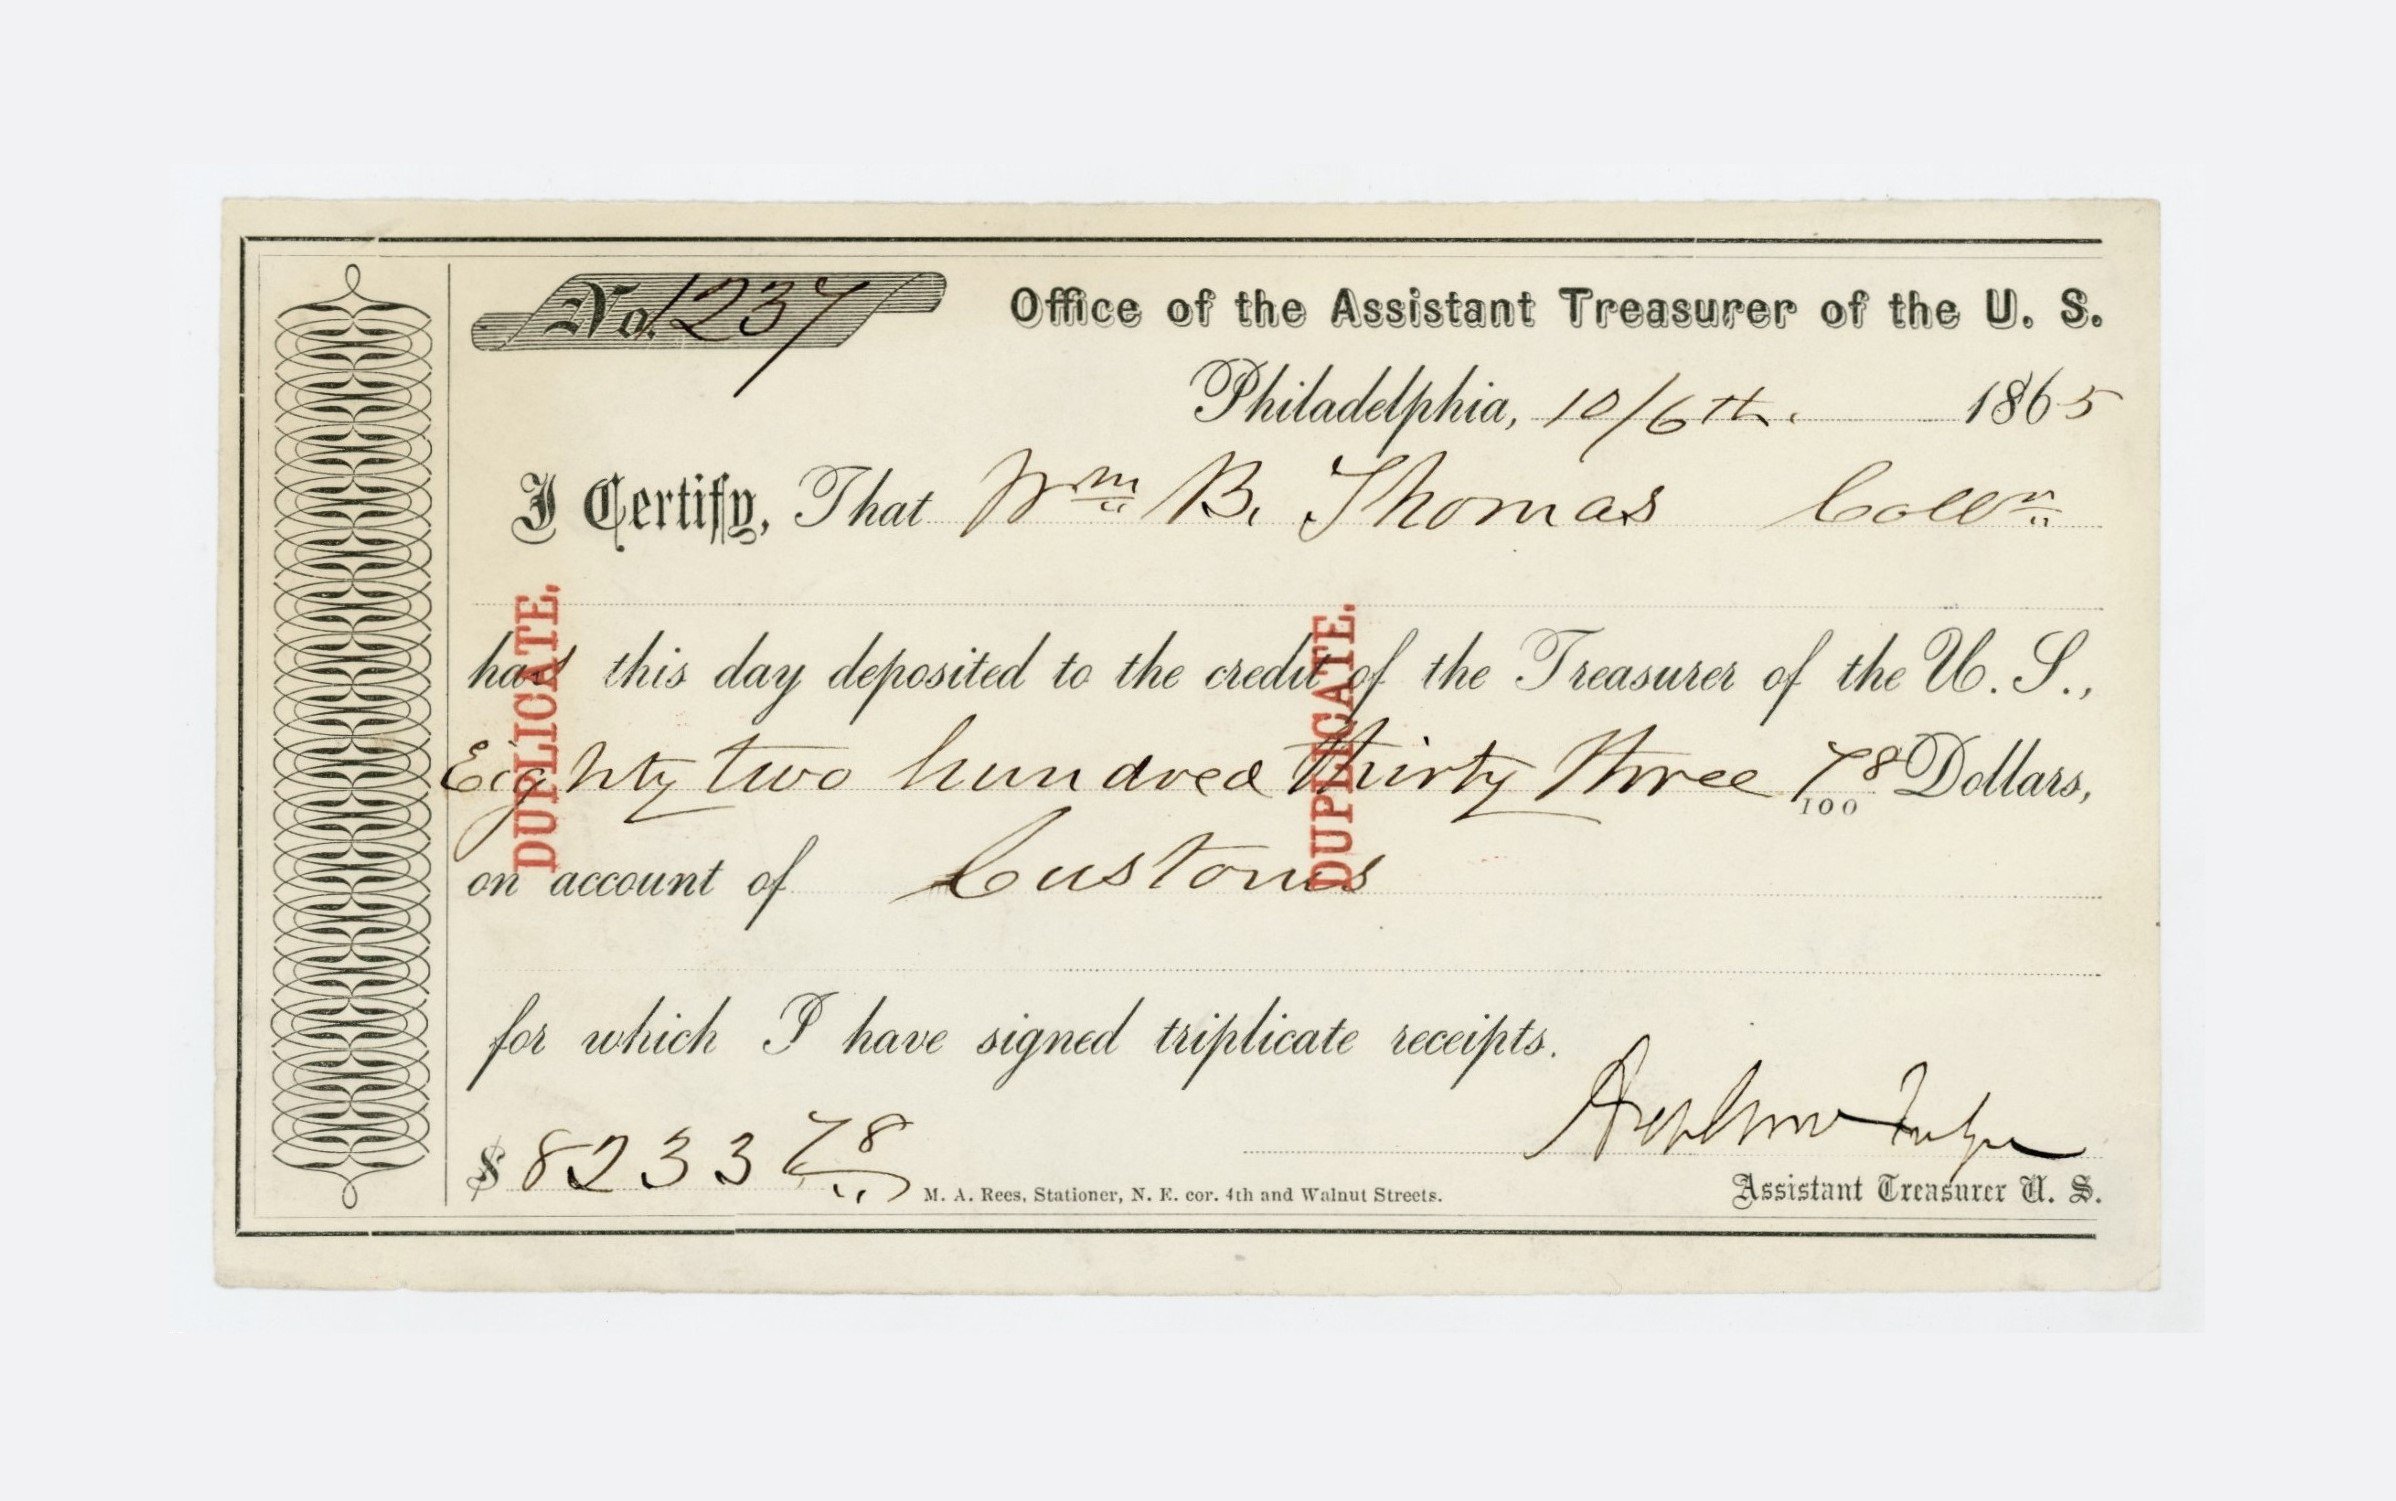 No. 1237
Office of the Assistant Treasurer of the U. S.
Philadelphia, 10/6th. 1865
I Certify, That Wm B. Thomas Collr
has this day deposited to the credit of the Treasurer of the U. S.,
Eighty two hundred thirty three 78/100 Dollars,
on account of Customs
for which I have signed triplicate receipts.
$ 8233 78
M. A. Rees, Stationer, N. E. cor. 4th and Walnut Streets.
Assistant Treasurer U. S.
DUPLICATE.
DUPLICATE.